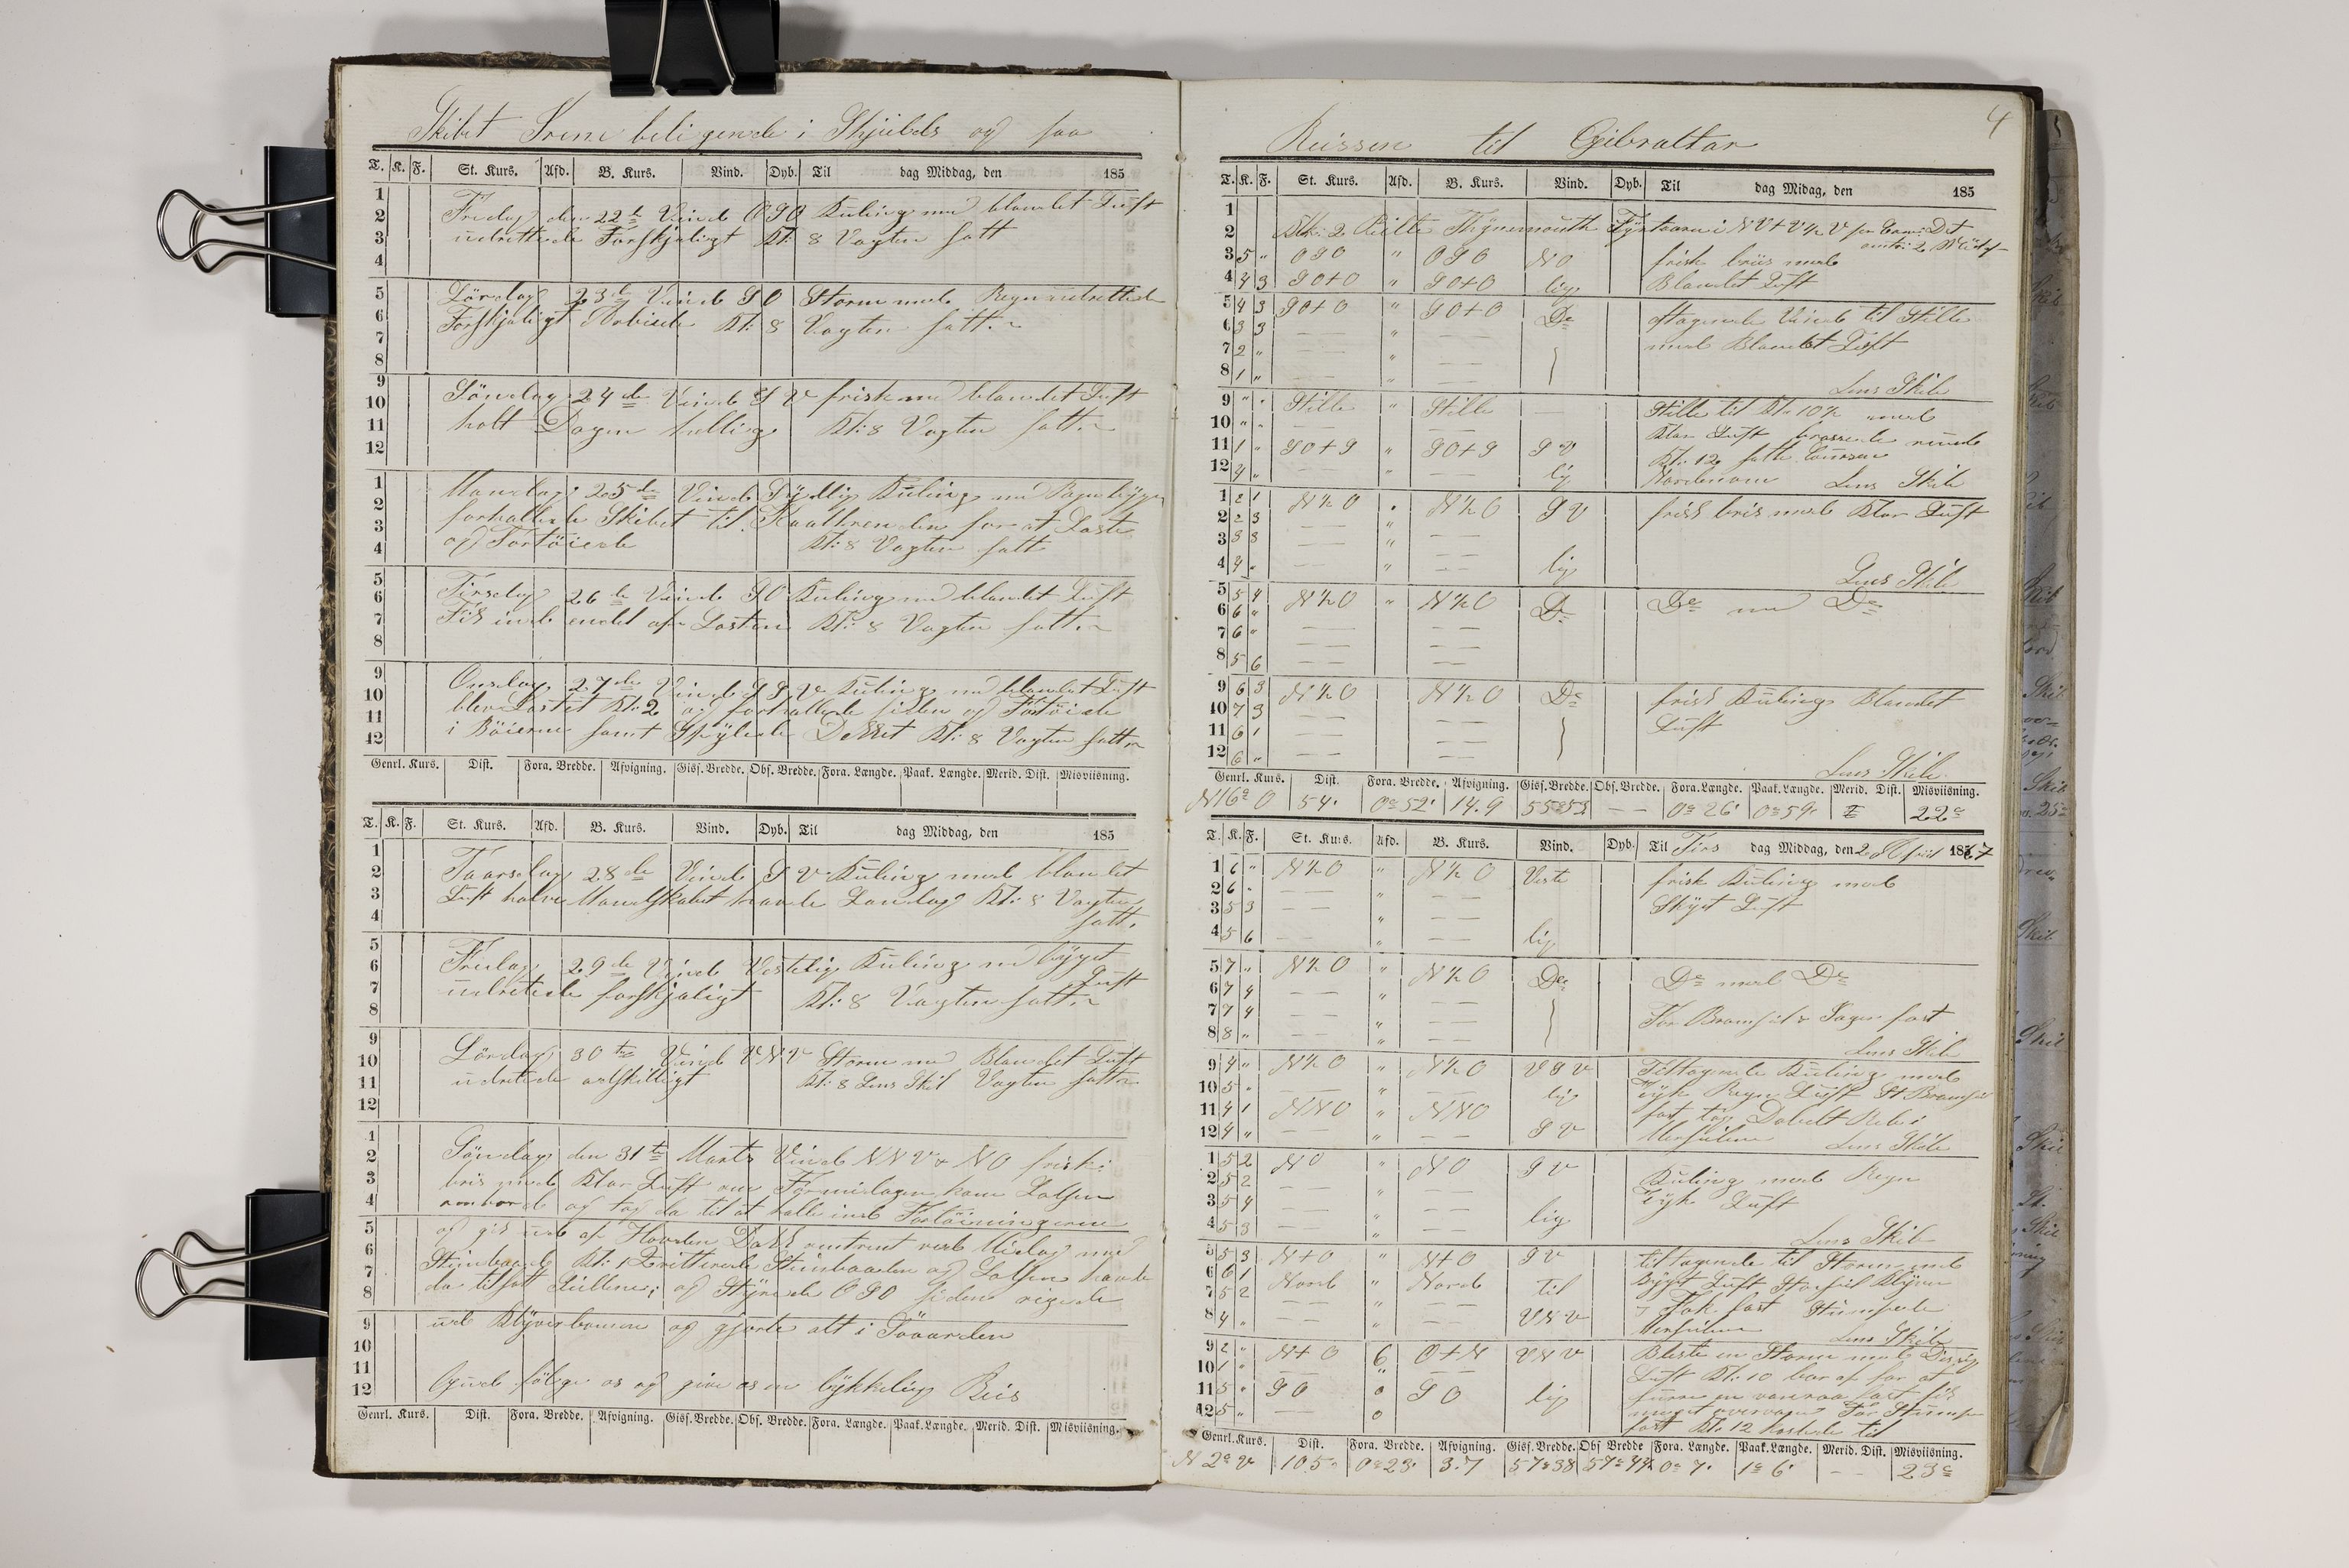 Skibet Irene beligende i Shjields og saa
T. K. F. St. Kurs. Afd. B. Kurs. Vind. Dyb. Til dag Middag, den 185
Fredag den 22de Vind OSO Kuling med blandet Luft
udrettede Forskjeligt Kl: 8 Vagten satt
Lördag 23de Vind SO Storm med Regn udrettede
Forskjeligt Arbeide Kl: 8 Vagten satt.
Söndag 24de Vind S V frisk med blandet Luft
holt Dagen hellig Kl: 8 Vagten satt.
Mandag 25de Vind Sydlig Kuling med Regnbyger
forhallede Skibet til for at Laste
og Fortöiede Kl: 8 Vagten satt
Tirsdag 26de Vind SO Kuling med blandet Luft
Fik ind endel af Lasten Kl: 8 Vagten satt.
Onsdag 27de Vind S S V Kuling med blandet Luft
blev Lastet Kl: 2 og forhallede siden og Fortöiede
i Böierne samt Spylede Dekket Kl: 8 Vagten satt
Genrl. Kurs. Dist. Fora. Bredde. Afvigning. Gisf. Bredde. Obs. Bredde. Fora. Længde. Paak. Længde. Merid. Dist. Misviisning.
T. K. F. St. Kurs. Afd. B. Kurs. Vind. Dyb. Til dag Middag, den 185
Taarsdag 28de Vind S V Kuling med blandet
Luft halve Mandskabet havde Landlog Kl: 8 Vagten
satt.
Fredag 29de Vind Vestelig Kuling med byget
Luft
udrettede forskjeligt Kl: 8 Vagten satt.
Lördag 30te Vind V N V Storm med Blandet Luft
udrettede adskilligt Kl: 8 Lens Skib Vagten satt
Söndag den 31te Marts Vind NNV & NO frisk
bris med Klar Luft om Formidagen kom Lodsen
ombord og tog da til at halle ind Fortöiningerne
og gik ud af Havden Dokk omtrent ved Midag med
Stimbaad Kl: 1 Stimbaaden og Lodsen havde
da tilsatt Seillene og Styrede OSO siden rigede
ud Klyverbomen og gjorde alt i Söaarden
Gud fölge os og give os en lykkelig Reis
4
Reissen til Gibraltar
T. K. F. St. Kurs. Afd. B. Kurs. Vind. Dyb. Til dag Midag, den 185
Klk: 2 Peilte Thynemouth Fyrtaarn i NV+V½V pr Comp: Dst
omtr: 2
3 5 " OSO " OSO NO frisk bris med
4 4 3 SO+O " SO+O lig Blandet Luft
5 4 3 SO+O " SO+O Do Aftagende Vind til Stille
6 3 3 — — " — — med Blandet Luft
7 2 " — — " — —
8 1 " — — " — — Lens Skib
9 " " Stille " Stille — Stille til Kl: 10½ med
10 " " — — — — Klar Luft brassede rundt
11 1 " SO+S " SO+S S V Kl: 12 satte Coursen
12 4 " — — " — — lig Nordenom Lens Skib
1 2 1 N½O " N½O S V frisk bris med Klar Luft
2 2 3 — — " — —
3 3 3 — — " — —
4 4 " — — " — — lig Lens Skib
5 5 4 N½O " N½O Do Do med Do
6 6 " — — — —
7 6 " — — — —
8 5 6 — — — —
9 6 3 N½O N½O Do frisk Kuling Blandet
10 7 3 — — — — Luft
11 6 1 — — — —
12 6 " — — — — Lens Skib
Genrl. Kurs. Dist. Fora. Bredde. Afvigning. Gisf. Bredde. Obs. Bredde. Fora. Længde. Paak. Længde. Merid. Dist. Misviisning.
N16°O 54. 0°52' 14.9 55°53 — — 0°26' 0°59' 22°
T. K. F. St. Kurs. Afd. B. Kurs. Vind. Dyb. Til Tirs dag Middag, den 2 April 1867
1 6 " N½O N½O Veste frisk Kuling med
2 6 " — — " — — Skyet Luft
3 5 3 — — " — —
4 5 6 — — " — — lig
5 7 " N½O " N½O Do Do med Do
6 7 4 — — " — —
7 7 4 — — " — — For Bramseil & Jager fast
8 8 " — — " — — Lens Skib
9 4 " N½O " N½O V S V Tiltagende Kuling med
10 5 " — — " — — lig Tyk Regn Luft St Bramseil
11 4 1 NNO " NNO fast tog Dobelt Reb i
12 4 " — — " — — S V Mersseilene Lens Skib
1 5 2 NO " NO S V Kuling med Regn
2 5 2 — — " — — Tyk Luft
3 5 4 — — " — —
4 5 3 — — " — — lig Lens Skib
5 5 3 N+O " N+O S V tiltagende til Storm med
6 6 1 Nord " Nord til Byget Luft Storseil Klyver
7 5 2 — — " — — Fok fast Stumpede
8 4 " — — " — — V N V Mersseilene Lens Skib
9 2 " N+O 6 O+N V N V Bleste en Storm med Disig
10 1 " " Luft Kl: 10 bar af for at
11 5 " SO 0 SO lig
12 5 " — 0 fast Kl: 12 til
Genrl. Kurs. Dist. Fora. Bredde. Afvigning. Gisf. Bredde. Obs Bredde Fora. Længde. Paak. Længde. Merid. Dist. Misviisning.
N 2° V 105. 0°23. 3.7 57°38 57°44 0°7' 1°6' — — 23°